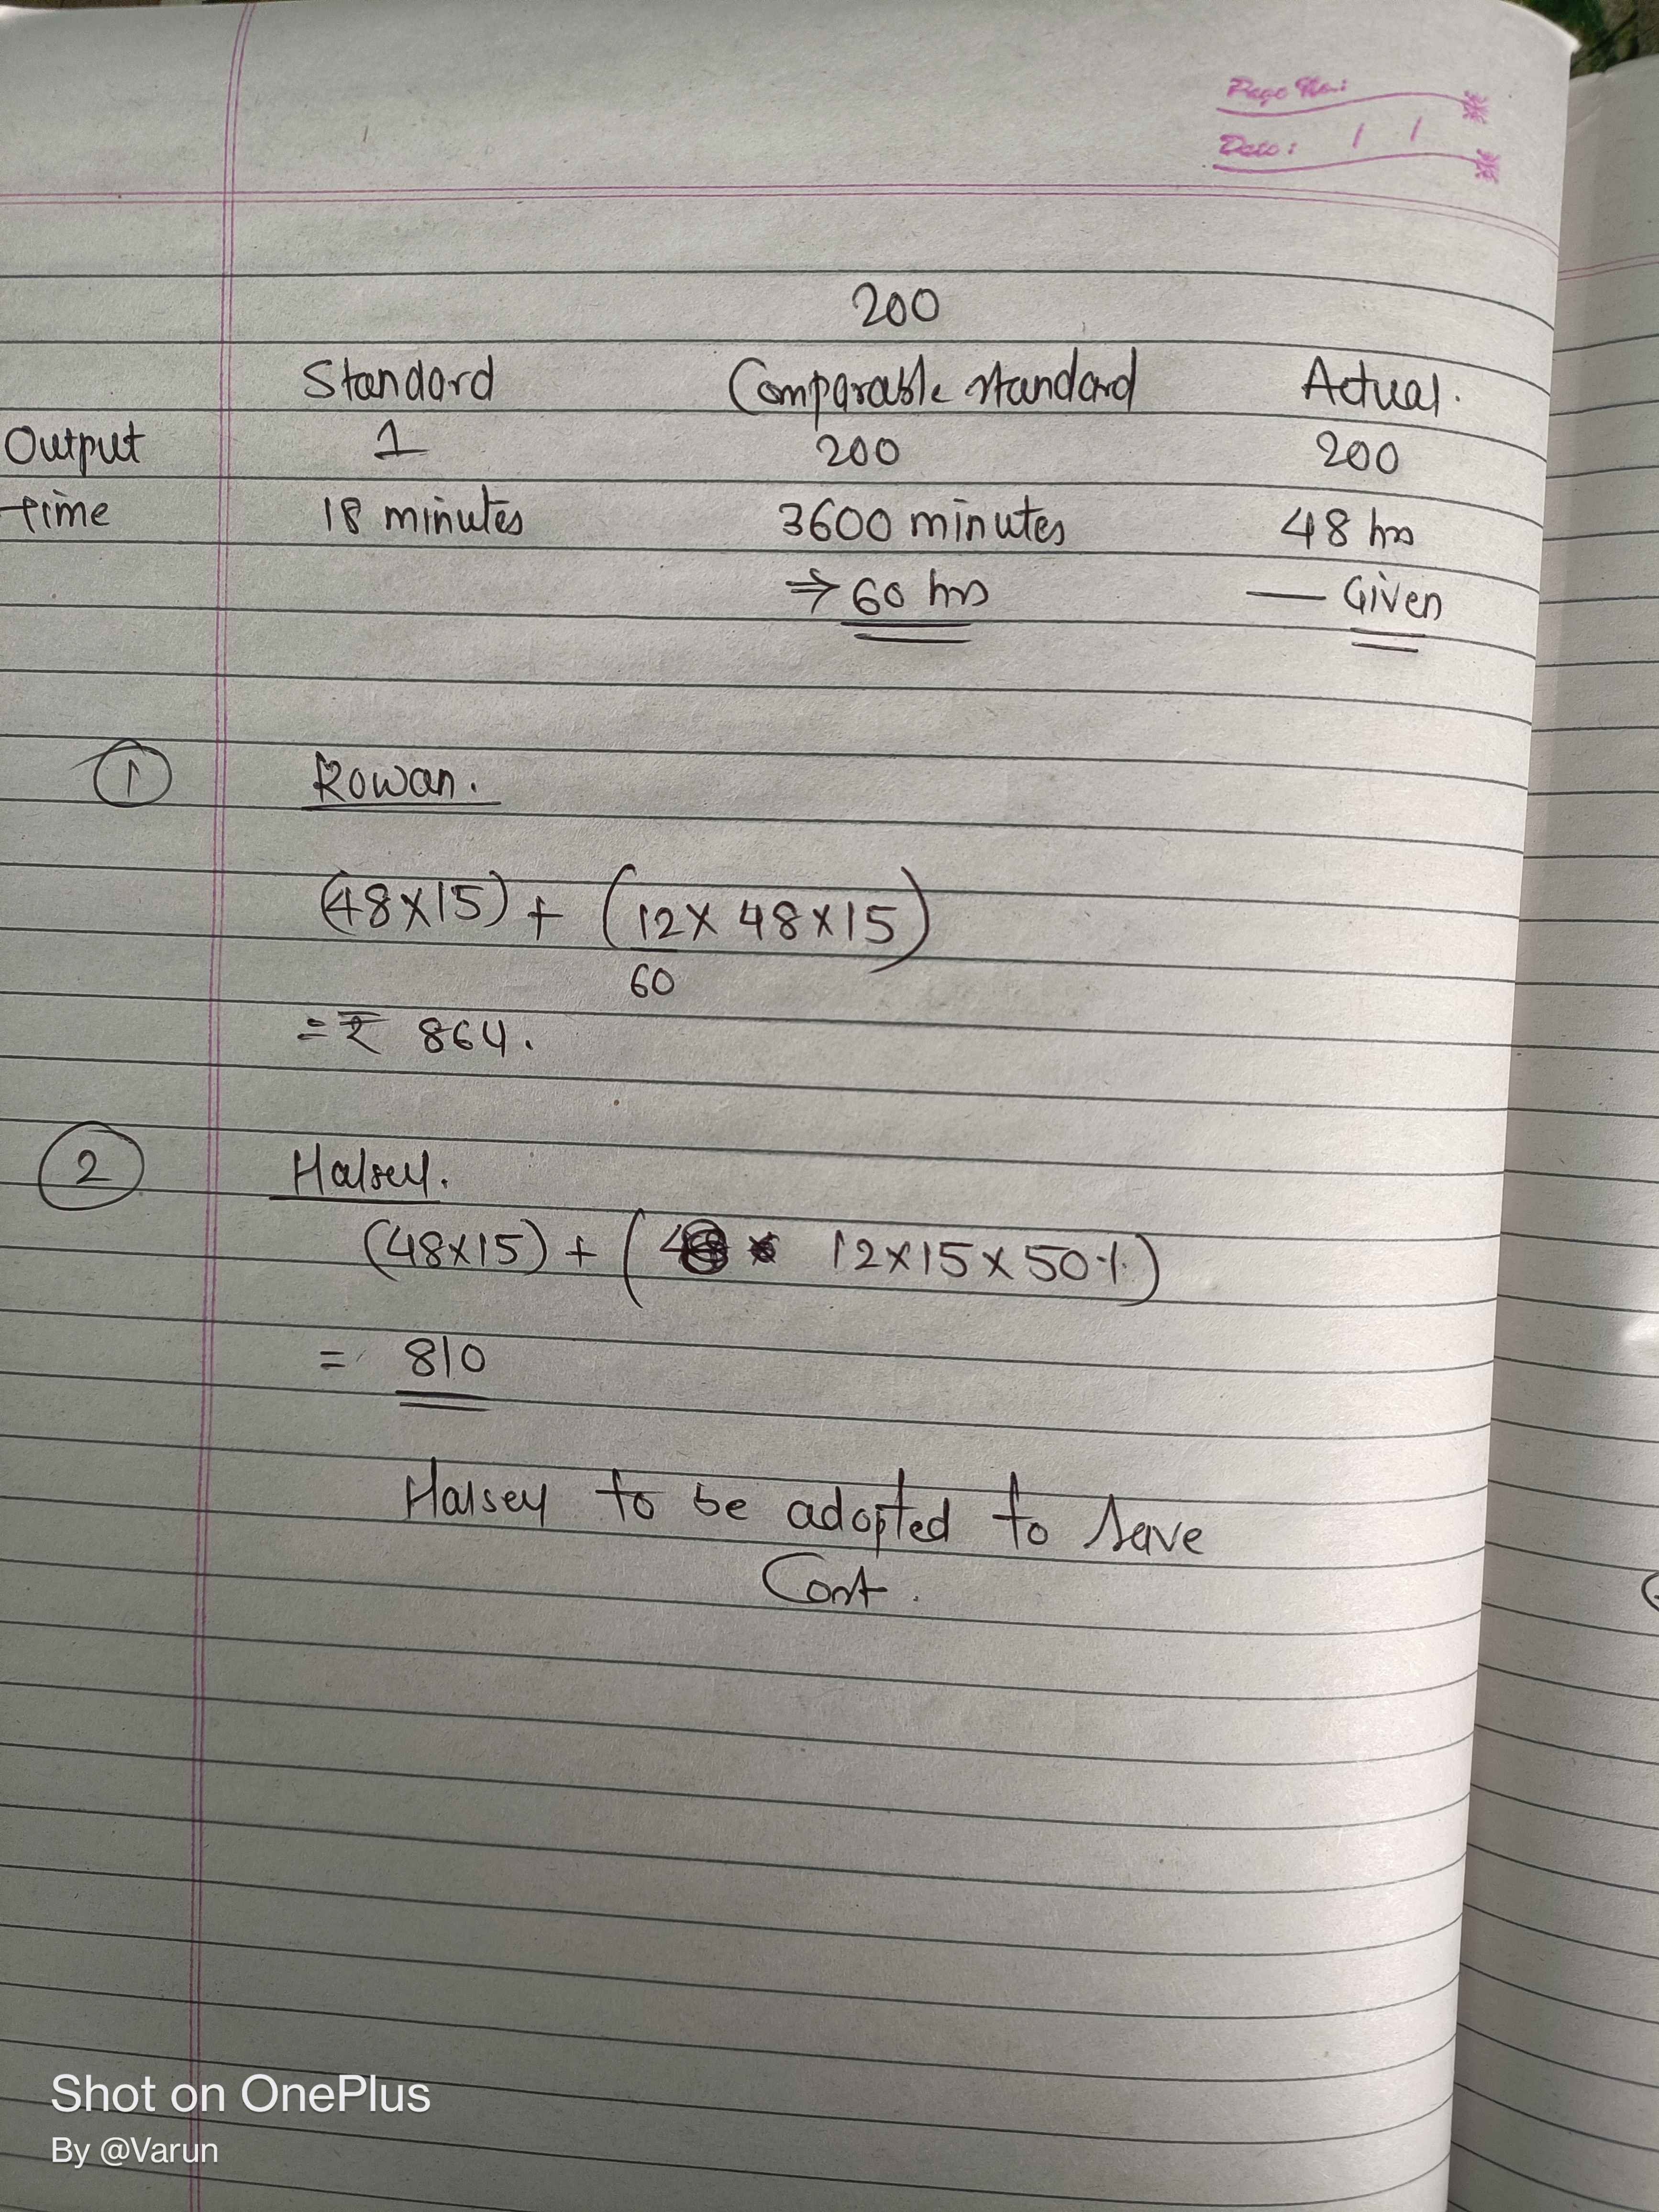 Page No.:
Date: / /
200
Standard Comparable standard Actual.
Output 1 200 200
time 18 minutes 3600 minutes 48 hrs
⇒ 60 hrs — Given
1 Rowan.
(48×15) + (12× 48×15)
60
= ₹ 864.
2 Halsey.
(48×15) + ( 12×15×50%)
= 810
Halsey to be adopted to save
Cost.
Shot on OnePlus
By @Varun